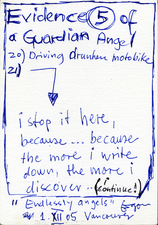 Evidence 5 of
a Guardian Angel
20) Driving drunken motobike
21)
i stop it here,
because... because
the more i write
down, the more i
discover... (continue!)
"Endlessly angels"
1. XII 05 Vancouver